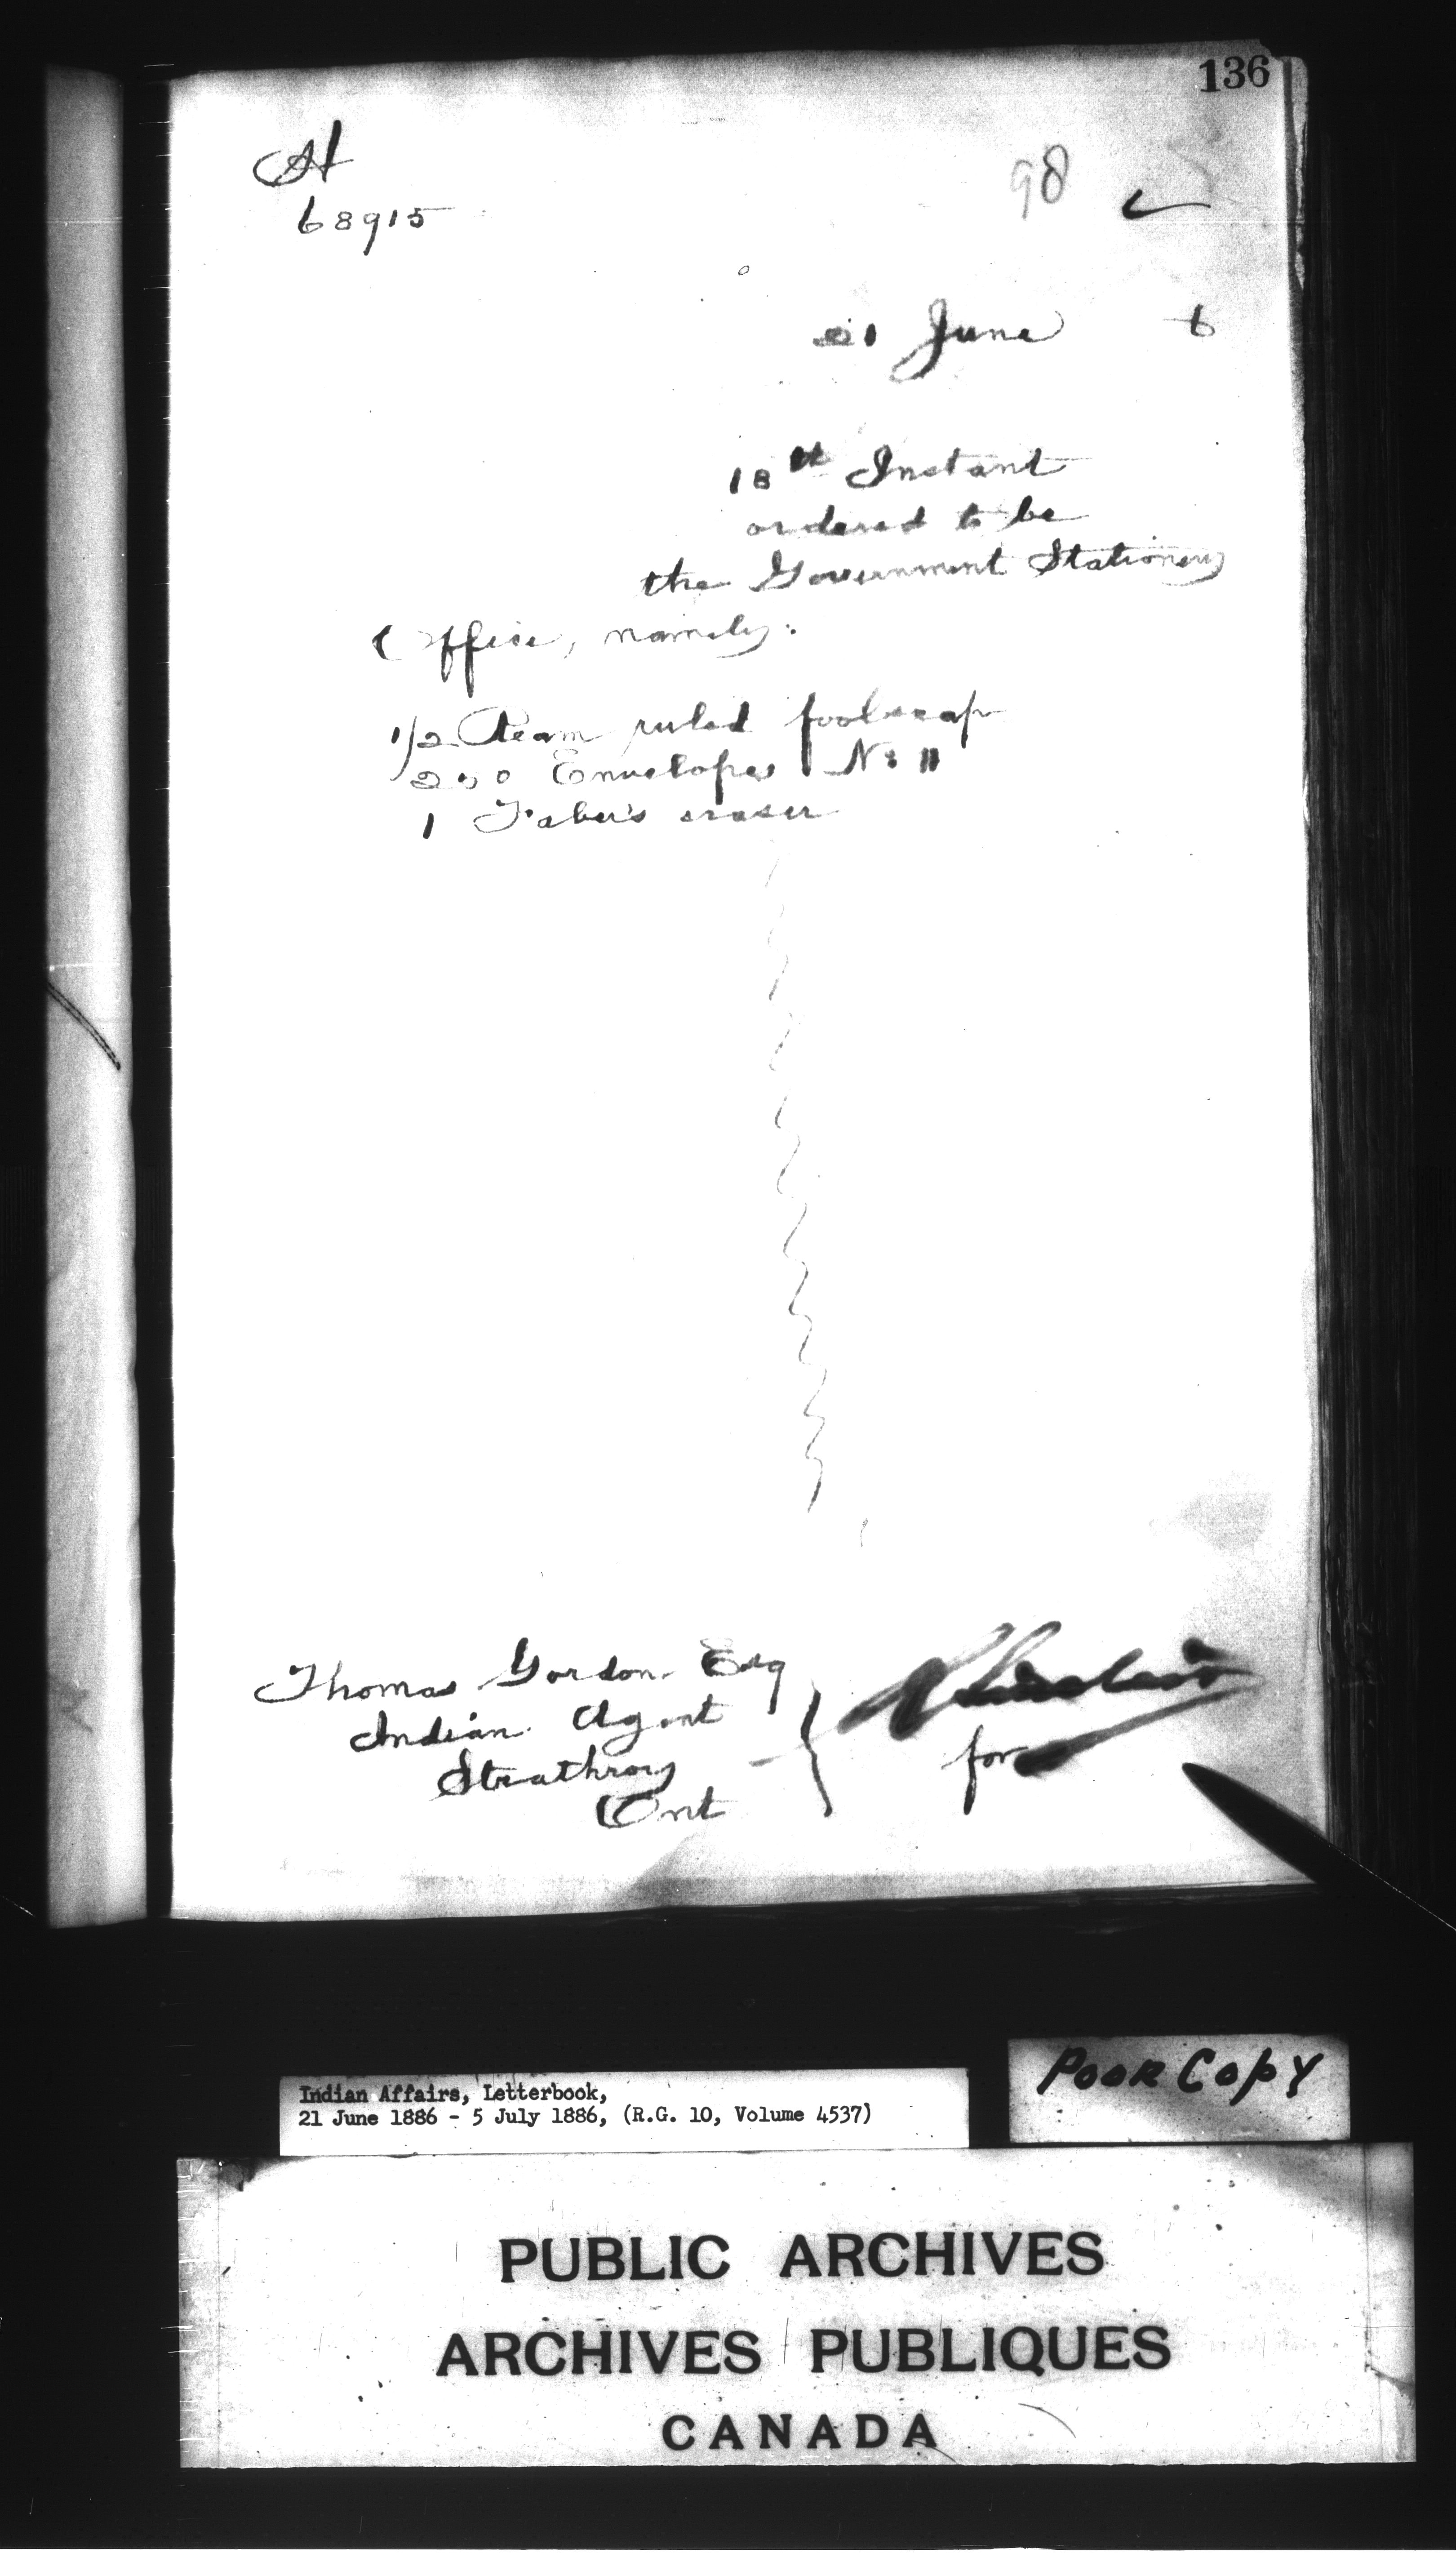 136
A
68915
98
21 June 6
18th Instant
ordered to be
the Government Stationery
Office, namely:
1/2 Ream ruled foolscap
250 Envelopes No 11
1 Faber's eraser
Thomas Gordon Esq
Indian Agent
Strathroy
Ont
R Sinclair
for
Indian Affairs, Letterbook,
21 June 1886 - 5 July 1886, (R.G. 10, Volume 4537)
POOR COPY
PUBLIC ARCHIVES
ARCHIVES PUBLIQUES
CANADA